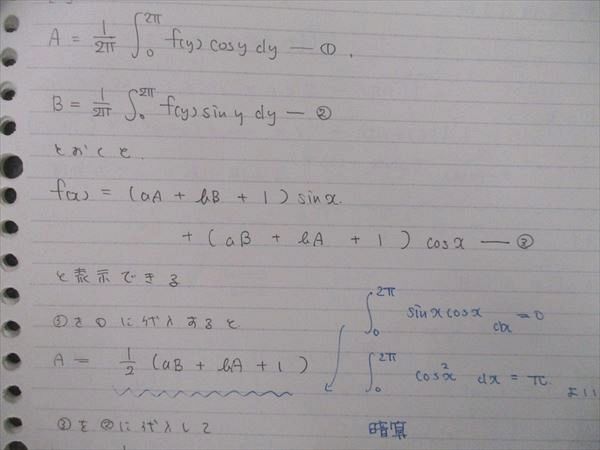 A = 1/2π ∫₀^2π f(y) cos y dy — ①.
B = 1/2π ∫₀^2π f(y) sin y dy — ②
とおくと.
f(x) = (aA + bB + 1) sin x.
+ (aB + bA + 1) cos x — ③
と表示できる
③を①に代入すると
A = 1/2 (aB + bA + 1)
∫₀^2π sin x cos x dx = 0
∫₀^2π cos²x dx = π. より
暗算
③を②に代入して